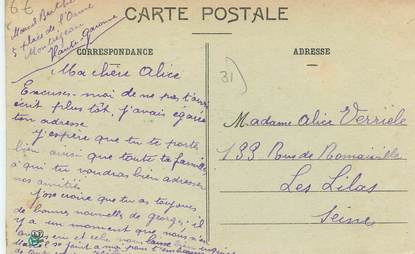 6€
Marcel Berthe
5 place de l'Orme
Montréjeau
Haute Garonne
CARTE POSTALE
CORRESPONDANCE
ADRESSE
31)
Ma chère Alice
Excuses-moi de ne pas t'avoir
écrit plus tôt, j'avais égaré
ton adresse
J'espère que tu te porte
bien ainsi que toute ta famille
à qui tu voudras bien adresser
nos amitiés
J'ose croire que tu as toujours
de bonnes nouvelles de george; il
y a un moment que nous n'en
avons eu et cela nous
se joint a moi pour
Madame Alice Verrièle
199 Rue de Romainville
Les Lilas
Seine